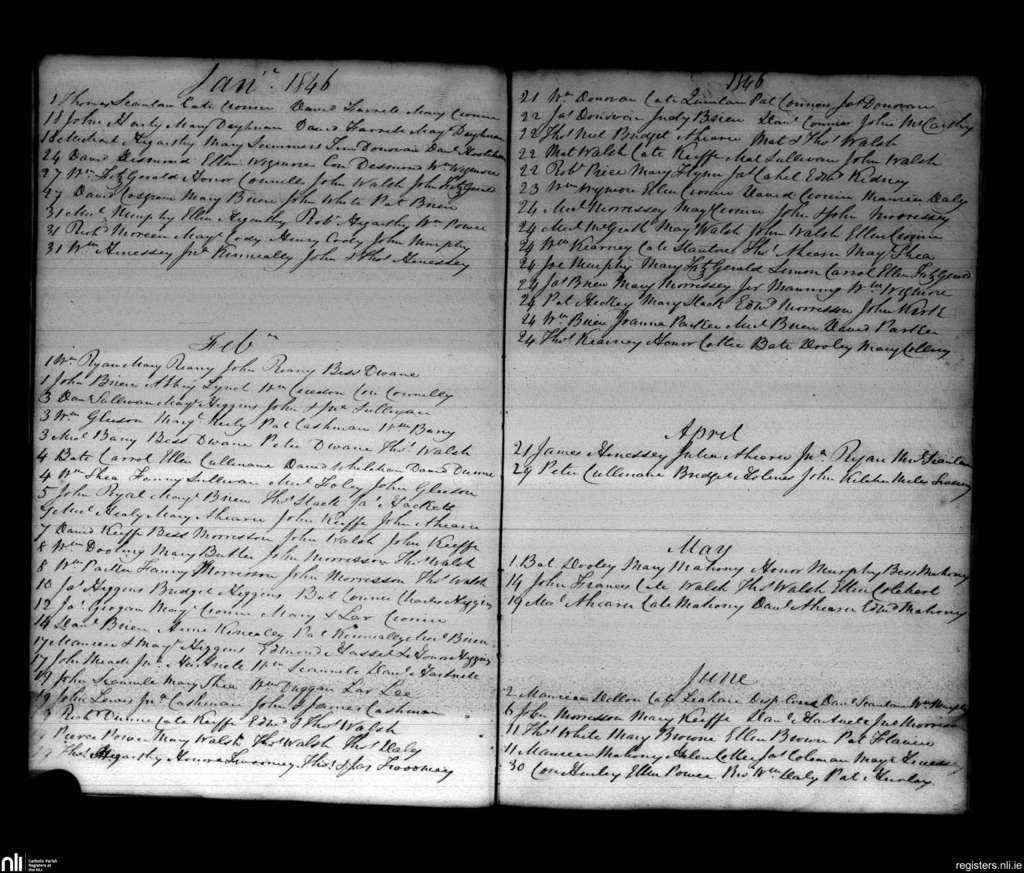 Jan.r 1846
1 Thomas Scanlan Cate Cronin David Farrele Mary Cronin
18 John Hurly Mary Deighnan David Farrele Mary Deighnan
18 Michael Hegarthy Mary Summers Tim Donovan Dan.l
24 David Desmond Ellen Wigmore Con Desmond Wm Wigmore
27 Wm FitzGerald Honor Connelle John Walsh John FitzGerald
27 David Cosgrave Mary Brien John White Pat Brien
31 Mic.l Murphy Ellen Hegarthy Rob.t Hegarthy Wm Power
31 Rich.d Moreen May.t Cody Henry Cody John Murphy
31 Wm Henessey Jn.a Kinneally John & Tho.s Henessey
Feb.ry
1 Wm Ryan Mary Reany John Reany Bess Dwane
1 John Brien Abbey Lynch Wm Con Connelly
3 Dan Sullivan Mary Higgins John & Sullivan
3 Wm Gleeson Marg.t Keily Pat Cashman Wm Barry
3 Mic.l Barry Bess Dwane Peter Dwane Tho.s Walsh
4 Bate Carrol Ellen Cullenane David Whelehan David Dunne
4 Wm Shea Fanny Sullivan Mic.l Foley John Gleeson
5 John Ryal May.t Brien Tho.s Slack Ja.s Hackett
7 Mic.l Healy Mary Ahearn John Keeffe John Ahearn
7 David Keeffe Bess Morrisson John Walsh John Keeffe
8 Wm Dooling Mary Butler John Morrisson Tho.s Walsh
8 Wm Parker Fanny Morrisson John Morrisson Tho.s Walsh
10 Ja.s Higgens Bridget Higgins Bat Connor Charles Higgins
12 Ja.s Grogan May.t Cronin Mary & Lar Cronin
14 Dan.l Brien Anne Kinealey Pat Kinneally Mic.l Brien
17 Maurice & May.t Higgens Edmund Hassel & Honor Higgins
17 John Meade Jn.a Hartnele Wm Scannele Dan.l Hartnele
19 John Scannele Mary Shea Wm Duggan Lar Lee
19 John Lewis Jn.a Cashman John & James Cashman
Rich.d Dunne Cate Keiffe Edm.d & Tho.s Walsh
Peirce Power Mary Walsh Tho.s Walsh Tho.s Daly
Tho.s Hegarthy Honora Twoomey Tho.s & Jas Twoomey
1846
21 Wm Donovan Cate Quinlan Pat Connor Ja.s Donovan
22 Ja.s Donovan Judy Brien Dan.l Connor John McCarthy
22 Tho.s Neil Bridget Ahearn Mat & Tho.s Walsh
22 Mat Walsh Cate Keiffe Mat Sullivan John Walsh
22 Rob.t Price Mary Flynn Ja.s Cahel Edm.d Kidney
23 Wm Wigmore Ellen Cronin David Cronin Maurice Daly
24 Mic.l Morrissey May Cronin John & John Morrissey
24 Mic.l McGrath May Walsh John Walsh Ellen Cronin
24 Wm Kearney Cate Stanton Tho.s Ahearn May Shea
24 Joe Murphy Mary FitzGerald Simon Carrol Ellen FitzGerald
24 Ja.s Brien Mary Morrissey Jer Manning Wm Wigmore
24 Pat Hickey Mary Slack Edm.d Morrisson John Kirk
24 Wm Brien Joanna Parker Mic.l Brien David Parker
24 Tho.s Kearney Honor Cotter Bate Dooley Mary Collery
April
21 James Henessey Julia Ahearn Jn.a Ryan Mic.l Scanlan
29 Peter Cullenane Bridget Holmes John Miles
May
1 Bat Dooley Mary Mahony Honor Murphy Bess Mahony
14 John Frances Cate Walsh Tho.s Walsh Ellen Colehert
19 Mic.l Ahearn Cate Mahony Dan.l Ahearn Edm.d Mahony
June
2 Maurice Dillon Cate Leahane Disp Cons Dan.l Scanlan Wm Murphy
6 John Morrisson Mary Keeffe Dan.l Hartnele Jn.o Morrison
11 Tho.s White Mary Browne Ellen Brown Pat Flavin
11 Maurice Mahony Helen Cotter Ja.s Coleman May.t Henessey
30 Con Hurley Ellen Power Wm Daly Pat Hurley
nli
Catholic Parish
Registers at
the NLI
registers.nli.ie